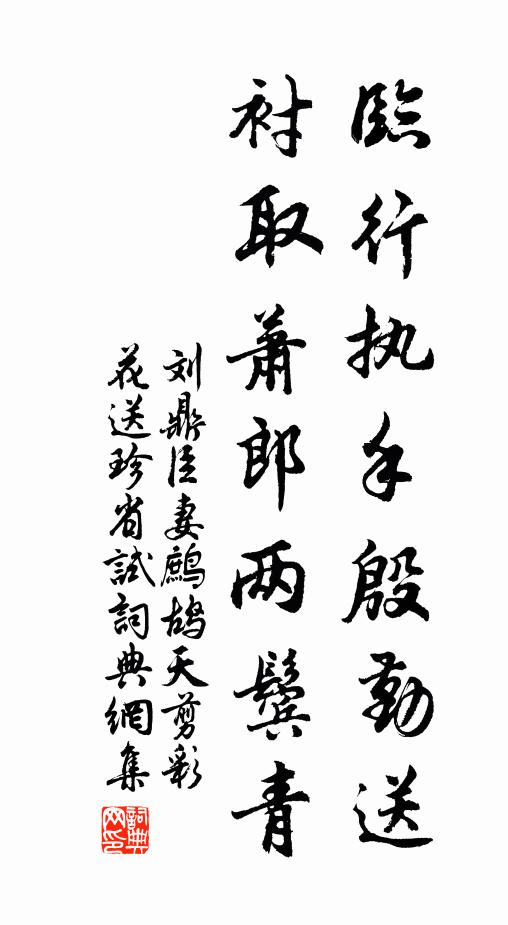 臨行执手殷勤送
衬取蕭郎两鬓青
刘鼎臣妻鷓鴣天剪彩
花送珍省試詞典網集
詞典
网印